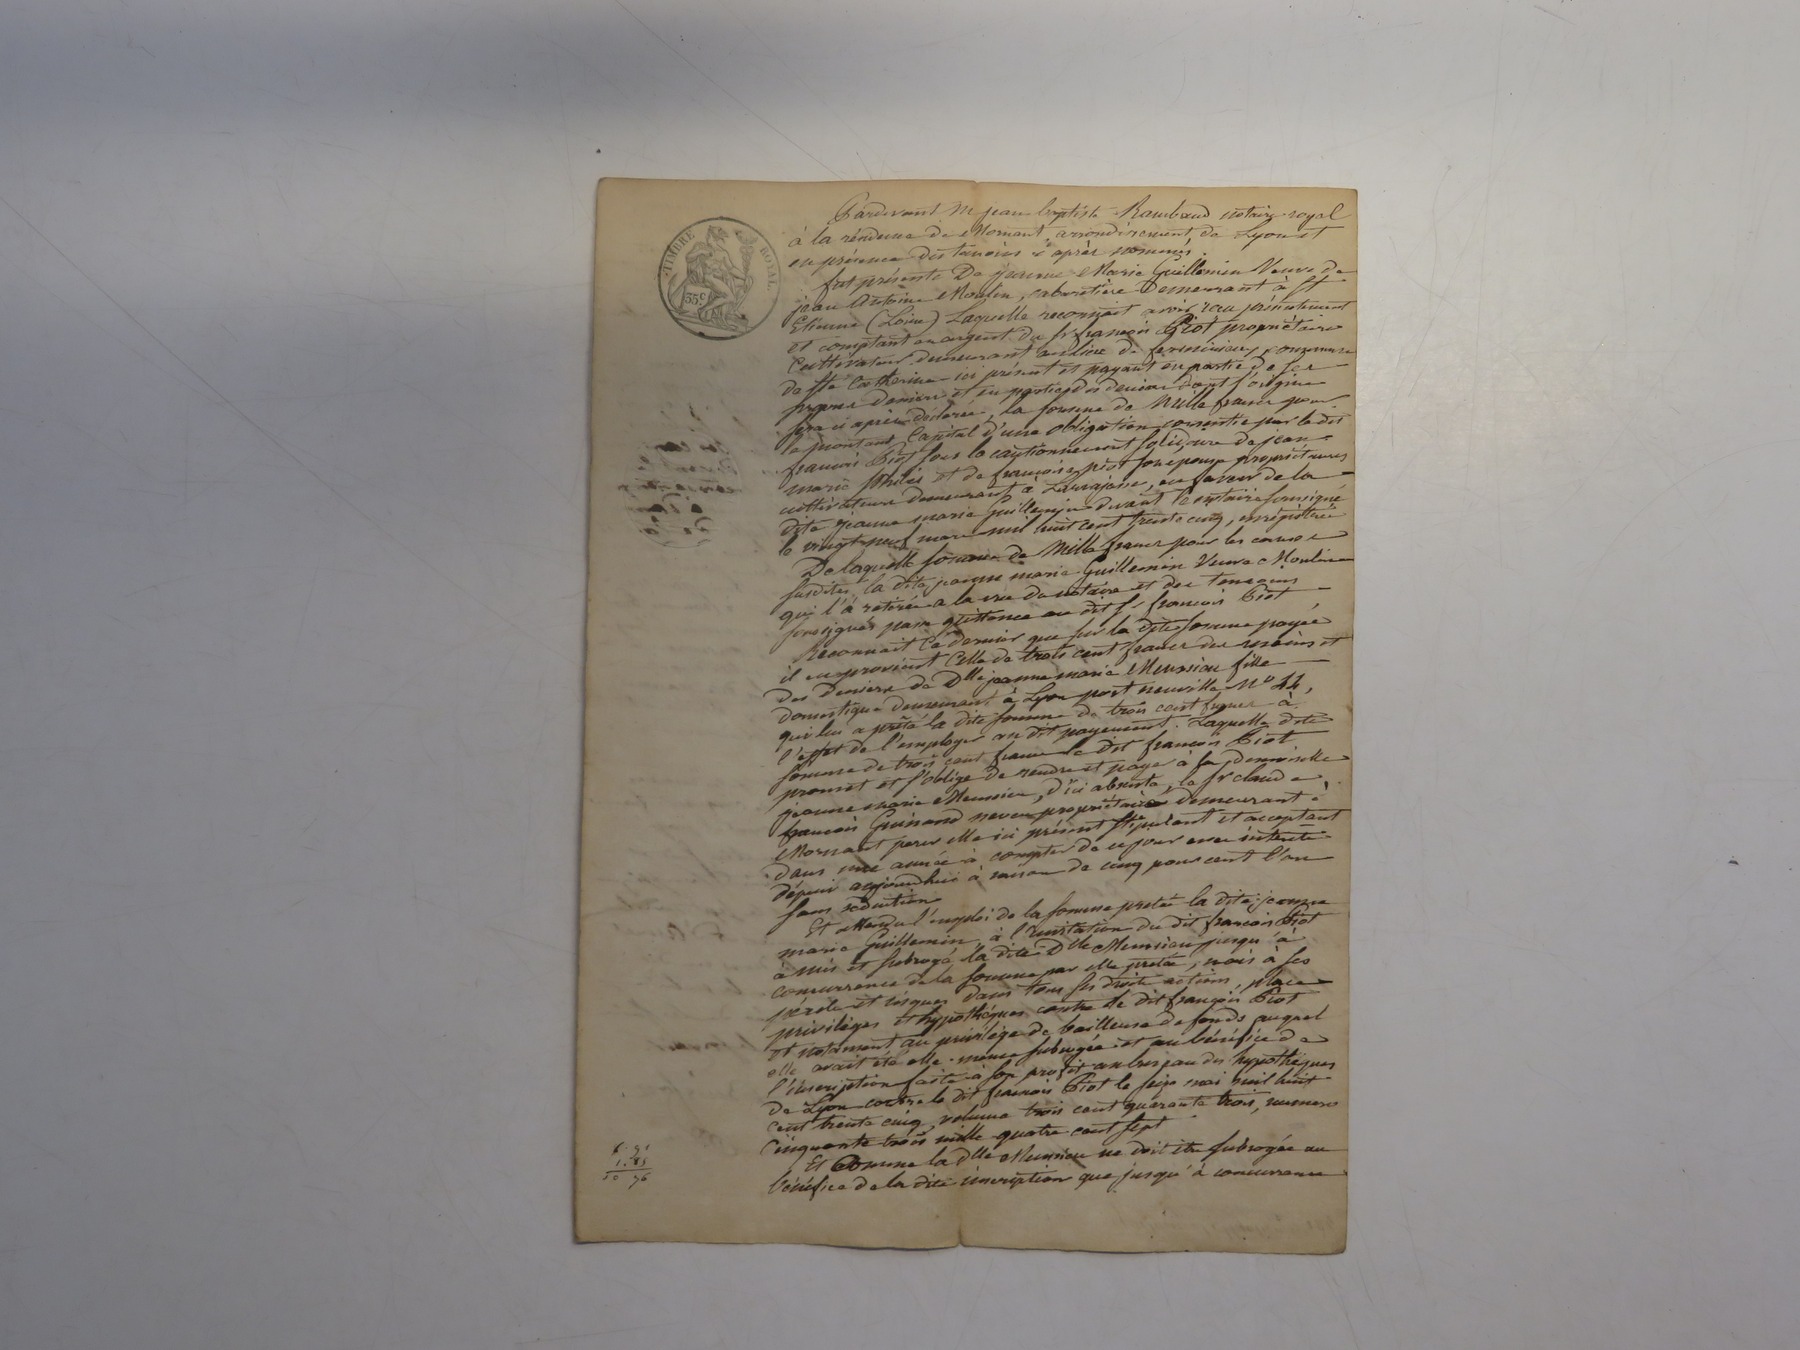 TIMBRE ROYAL
35c
Pardevant Me jean baptiste Rambaud notaire royal
à la résidence de Mornant arrondissement de Lyon et
en présence des temoins ci après nommés.
fut présente De jeanne Marie Guillemin Veuve de
jean Antoine Moulin, cabaretière demeurant à St
Etienne (Loire) Laquelle reconnait avoir reçu présentement
et comptant en argent du Sr françois Piot propriétaire
Cultivateur demeurant au lieu de commune
de Ste Catherine ici présent et payant en partie de ses
propres deniers et en partie des deniers dont l'origine
sera ci après déclarée, la somme de Mille francs pour
le montant Capital d'une obligation consentie par le dit
françois Piot sous le cautionnement solidaire de jean
marie et de françoise piot son epouse propriétaires
cultivateurs demeurant à Larajasse, en faveur de la
dite jeanne marie Guillemin devant le notaire soussigné
le vingt neuf mars mil huit cent trente cinq, enrégistrée
De laquelle somme de Mille francs pour les causes
susdites, la dite jeanne marie Guillemin Veuve Moulin
qui l'à retirée a la vue du notaire et des temoins
soussignés passe quittance au dit Sr françois Piot
Reconnait Ce dernier que sur la dite somme payée
il en provient Celle de trois cent francs des mains et
des Deniers de Dlle jeanne marie Meunsieu fille
domestique demeurant à Lyon port neuville No 44,
qui lui a prêté la dite somme de trois cent francs à
l'effet de l'employer au dit payement. Laquelle dite
somme de trois cent francs le dit françois Piot
promet et s'oblige de rendre et payer à la demoiselle
jeanne marie Meunsieu, d'ici absente, le Sr claude
françois Guinand neveu propriétaire demeurant à
Mornant pour elle ici présent stipulant et acceptant
dans une année à compter de ce jour avec intérêts
dépuis aujourdhui à raison de cinq pour cent l'an
sans réduction
Et attendu l'emploi de la somme pretée la dite jeanne
marie Guillemin, à l'invitation du dit françois Piot
à mis et subrogé la dite Dlle Meunsieu jusqu'à
concurrence de la somme par elle pretée, mais à ses
périls et risques dans tous ses droits actions, place
privilèges et hypothèques contre le dit françois Piot
et notament au privilège de bailleuse de fonds auquel
elle avait été elle même subrogée et au bénéfice de
l'inscription faite à son profit au bureau des hypothèques
de Lyon contre le dit françois Piot le seize mai mil huit
cent trente cinq, volume trois cent quarante trois, numero
Cinquante trois mille quatre cent sept
Et Comme la Dlle Meunsieu ne doit être subrogée au
bénéfice de la dite inscription que jusqu'à concurrence